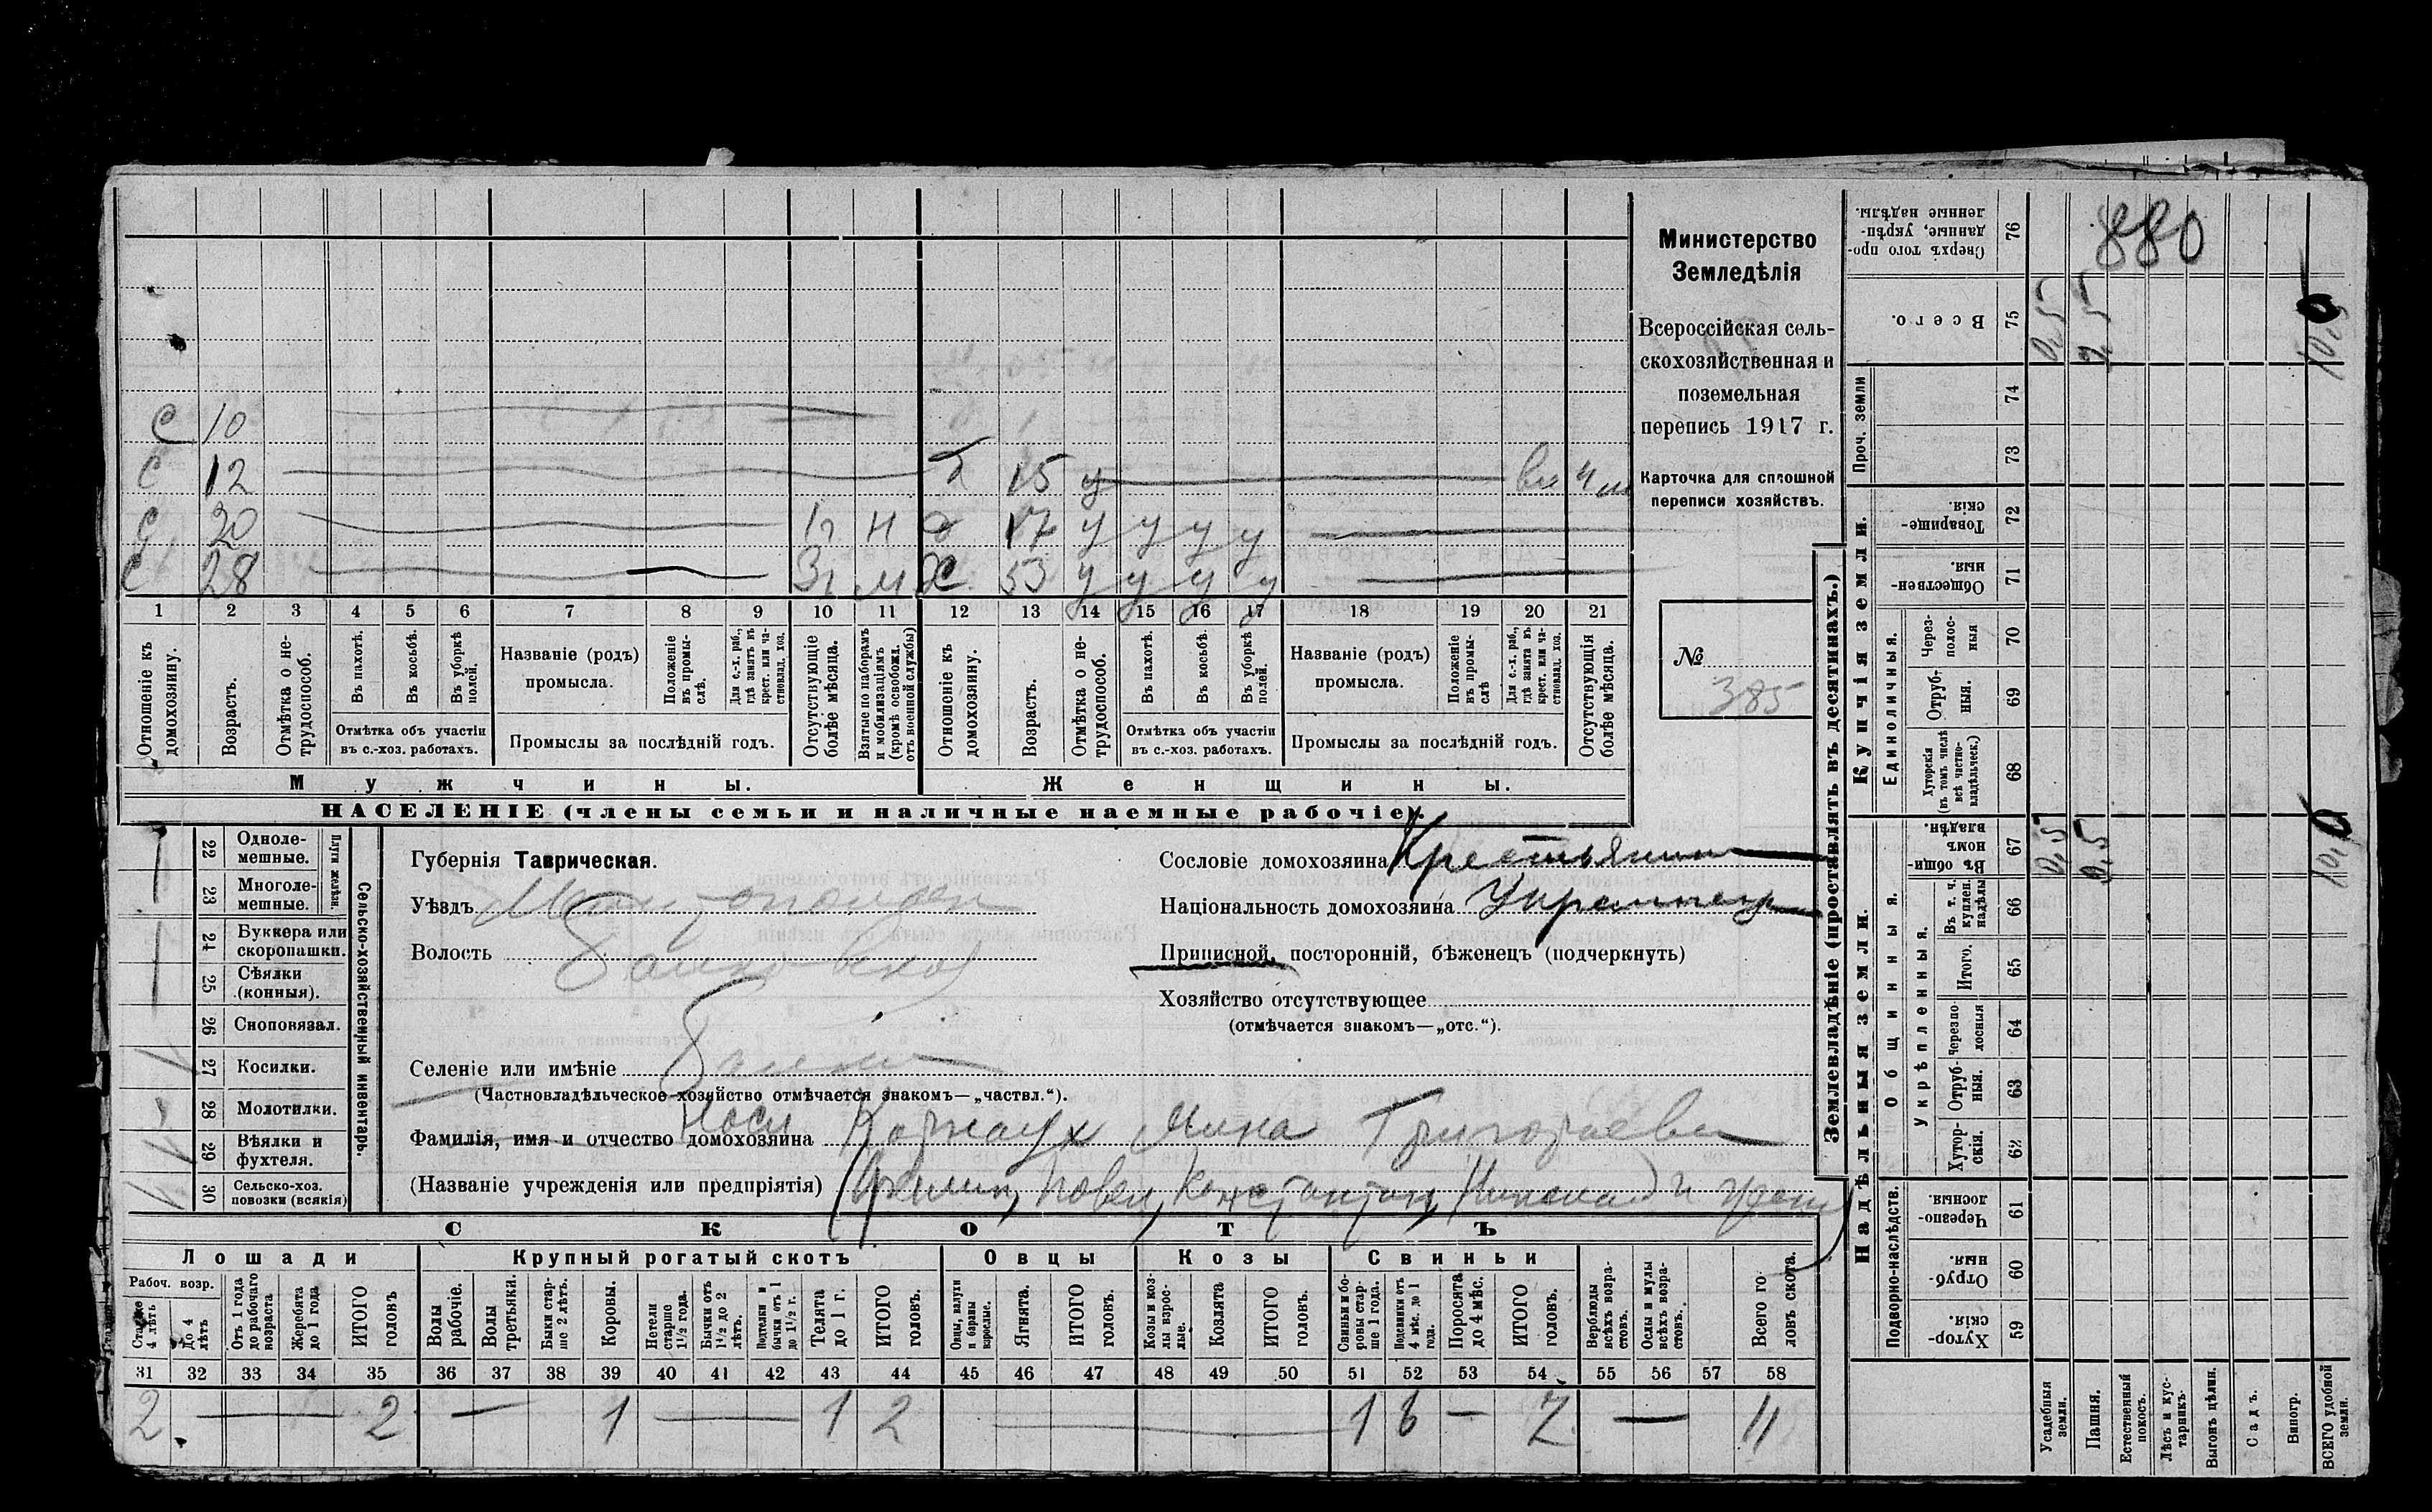 880
Министерство
Земледѣлія
Всероссійская сель-
скохозяйственная и
поземельная
перепись 1917 г.
Карточка для сплошной
переписи хозяйствъ.
№
385
С 10
С 12 15 у
С 20 Н 17 у у у у
С 28 М Х 53 у у у у
1 2 3 4 5 6 7 8 9 10 11 12 13 14 15 16 17 18 19 20 21
Отношеніе къ домохозяину.
Возрастъ.
Отмѣтка о не-трудоспособ.
Въ пахотѣ.
Въ косьбѣ.
Въ уборкѣ полей.
Отмѣтка объ участіи
въ с.-хоз. работахъ.
Названіе (родъ)
промысла.
Положеніе въ промы-слѣ.
Для с.-х. раб., гдѣ занятъ въ крест. или ча-стновлад. хоз.
Промыслы за послѣдній годъ.
Отсутствующіе болѣе мѣсяца.
Взятые по наборамъ и мобилизаціямъ (кромѣ освобожд. отъ военной службы)
Отношеніе къ домохозяину.
Возрастъ.
Отмѣтка о не-трудоспособ.
Въ пахотѣ.
Въ косьбѣ.
Въ уборкѣ полей.
Отмѣтка объ участіи
въ с.-хоз. работахъ.
Названіе (родъ)
промысла.
Положеніе въ промы-слѣ
Для с.-х. раб., гдѣ занята въ крест. или ча-стновлад. хоз.
Промыслы за послѣдній годъ.
Отсутствующія болѣе мѣсяца.
Мужчины.
Женщины.
НАСЕЛЕНІЕ (члены семьи и наличные наемные рабочіе).
22 Одноле-мешные.
23 Многоле-мешные.
Плуги желѣзн.
24 Буккера или скоропашки.
25 Сѣялки (конныя).
26 Сноповязал.
27 Косилки.
28 Молотилки.
29 Вѣялки и фухтеля.
30 Сельско-хоз. повозки (всякія)
Сельско-хозяйственный инвентарь.
Губернія Таврическая.
Уѣздъ
Волость
Селеніе или имѣніе
(Частновладѣльческое хозяйство отмѣчается знакомъ—„частвл.“).
Сословіе домохозяина Крестьянин
Національность домохозяина Украинец
Приписной, посторонній, бѣженецъ (подчеркнуть)
Хозяйство отсутствующее
(отмѣчается знакомъ—„отс.“).
Фамилія, имя и отчество домохозяина Коржаух Мина Григорьеви
(Названіе учрежденія или предпріятія) Константин, Николай и
СКОТЪ
Лошади
Крупный рогатый скотъ
Овцы
Козы
Свиньи
Рабоч. возр.
Старше 4 лѣтъ
До 4 лѣтъ
Отъ 1 года до рабочаго возраста
Жеребята до 1 года
ИТОГО головъ
Волы рабочіе.
Волы третьяки.
Быки стар-ше 2 лѣтъ.
Коровы.
Нетели старше 1½ года.
Бычки отъ 1½ до 2 лѣтъ.
Подтелки и бычки отъ 1 до 1½ г.
Телята до 1 г.
ИТОГО головъ.
Овцы, валухи и бараны взрослые.
Ягнята.
ИТОГО головъ.
Козы и коз-лы взрос-лые.
Козлята
ИТОГО головъ.
Свиньи и бо-ровы стар-ше 1 года.
Подсвинки отъ 4 мѣс. до 1 года.
Поросята до 4 мѣс.
ИТОГО головъ.
Верблюды всѣхъ возра-стовъ.
Ослы и мулы всѣхъ возра-стовъ.
Всего го-ловъ скота.
31 32 33 34 35 36 37 38 39 40 41 42 43 44 45 46 47 48 49 50 51 52 53 54 55 56 57 58
2 — 2 — 1 — 1 2 — 1 6 — 7 — 11
Землевладѣніе (проставлять въ десятинахъ.)
Купчія земли.
Надѣльныя земли.
Проч. земли
Единоличныя.
Общинныя.
Укрѣпленныя.
Подворно-наслѣдств.
76 Сверхъ того про-данные, укрѣп-ленные надѣлы.
75 Всего.
74
73
72 Товарище-скія.
71 Обществен-ныя.
70 Через-полос-ныя
69 Отруб-ныя.
68 Хуторскія (въ томъ числѣ всѣ частно-владѣльческ.)
67 Въ общин-номъ владѣн.
66 Въ т. ч. куплен. надѣлы
65 Итого.
64 Черезпо-лосныя
63 Отруб-ныя.
62 Хутор-скія.
61 Черезпо-лосныя.
60 Отруб-ныя.
59 Хутор-скія.
Усадебныя земли.
Пашня.
Естественный покосъ.
Лѣсъ и кус-тарникъ.
Выгонъ цѣлин.
Садъ.
Виногр.
ВСЕГО удобной земли.
0,5
0,5